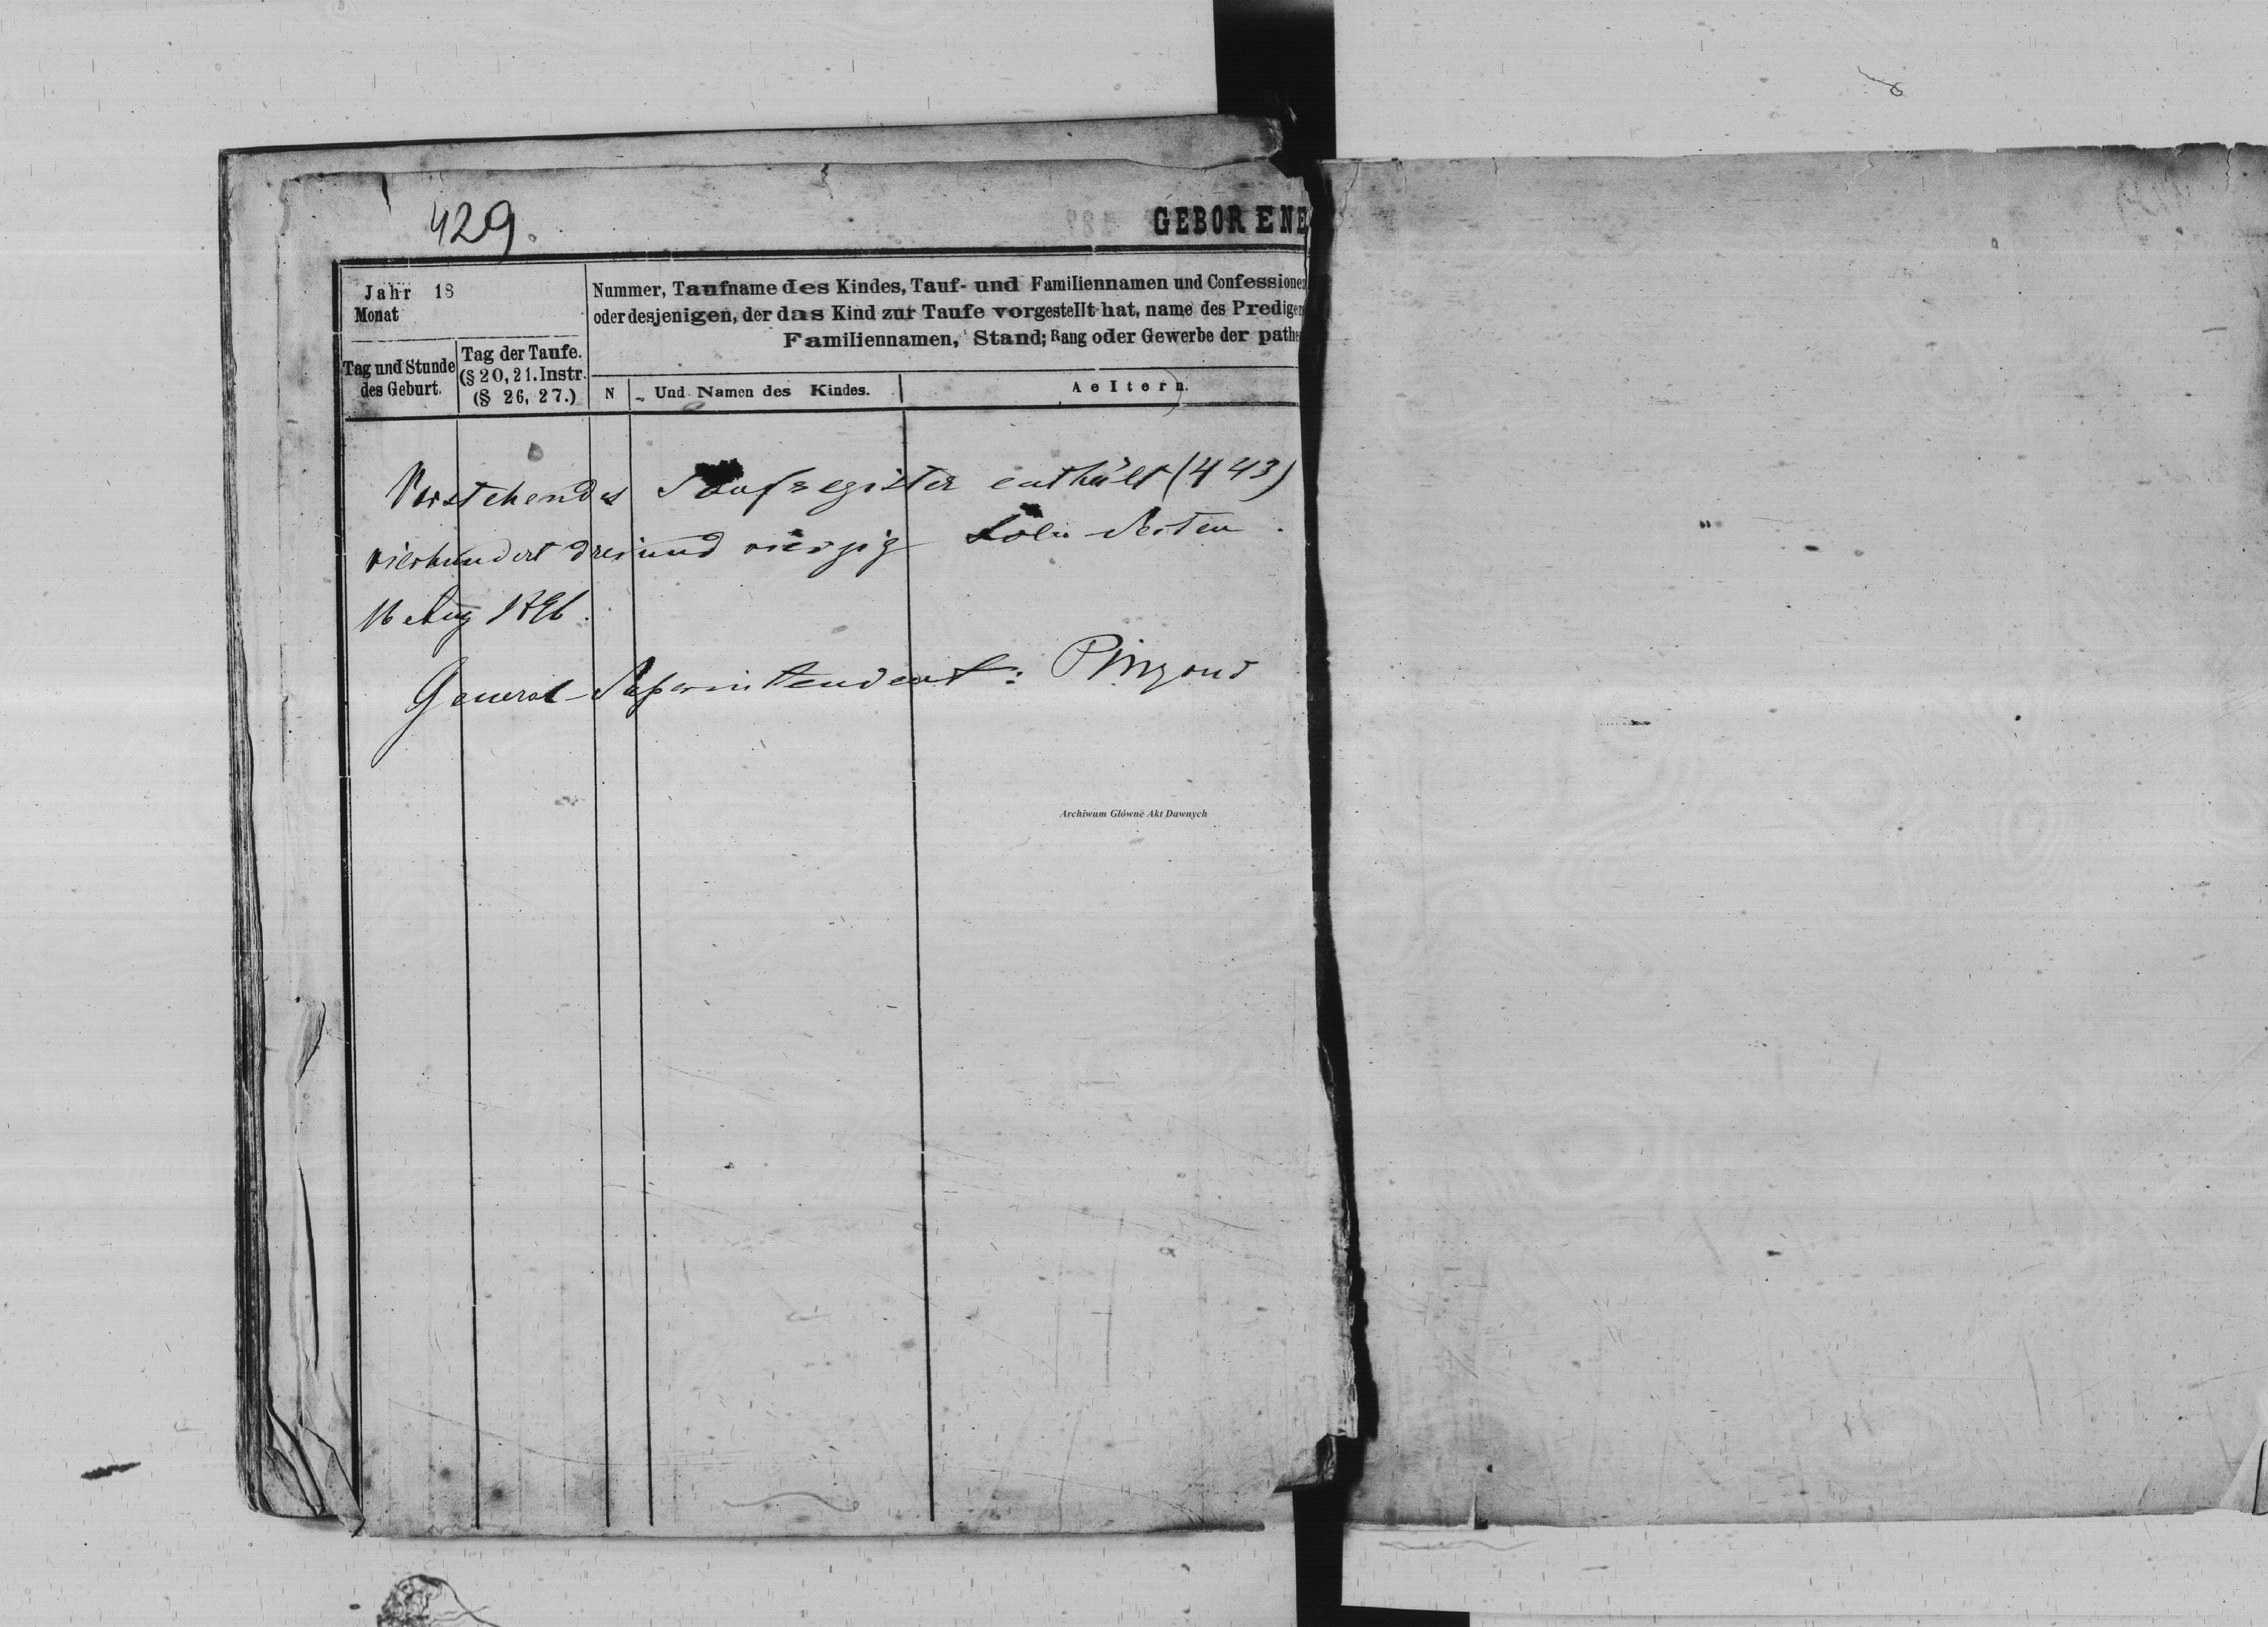 429.
GEBORENE
Jahr 18
Monat
Nummer, Taufname des Kindes, Tauf- und Familiennamen und Confessionen
oder desjenigen, der das Kind zur Taufe vorgestellt hat, name des Prediger
Familiennamen, Stand; Rang oder Gewerbe der pathe
Tag und Stunde
des Geburt.
Tag der Taufe.
(§ 20, 21. Instr.
(§ 26, 27.)
N
Und Namen des Kindes.
Aeltern.
Vorstehendes Taufregister enthält (443)
vierhundert dreiundvierzig Folio Seiten.
16 Aug 1896.
General-Superintendent: Pingoud
Archiwum Główne Akt Dawnych